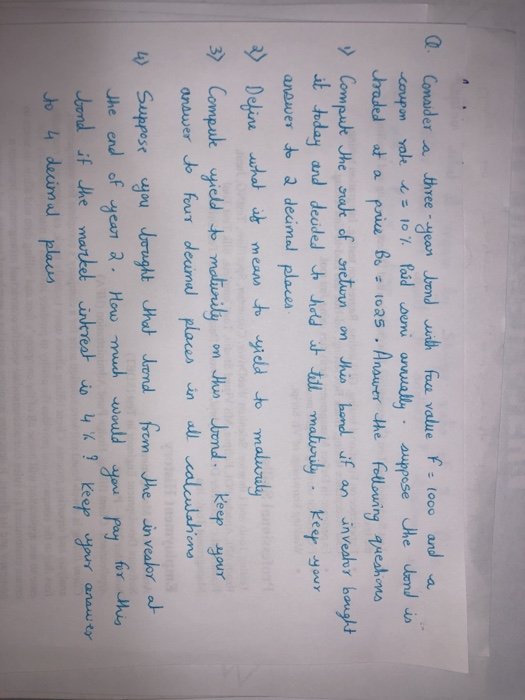 Q. Consider a three-year bond with face value F = 1000 and a
coupon rate c = 10% Paid semi annually. suppose the bond is
traded at a price B0 = 1025. Answer the following questions
1) Compute the rate of return on this bond if an investor bought
it today and decided to hold it till maturity. Keep your
answer to 2 decimal places.
2) Define what it means to yield to maturity
3) Compute yield to maturity on this bond. Keep your
answer to four decimal places in all calculations
4) Suppose you bought that bond from the investor at
the end of year 2. How much would you pay for this
bond if the market interest is 4%? Keep your answer
to 4 decimal places